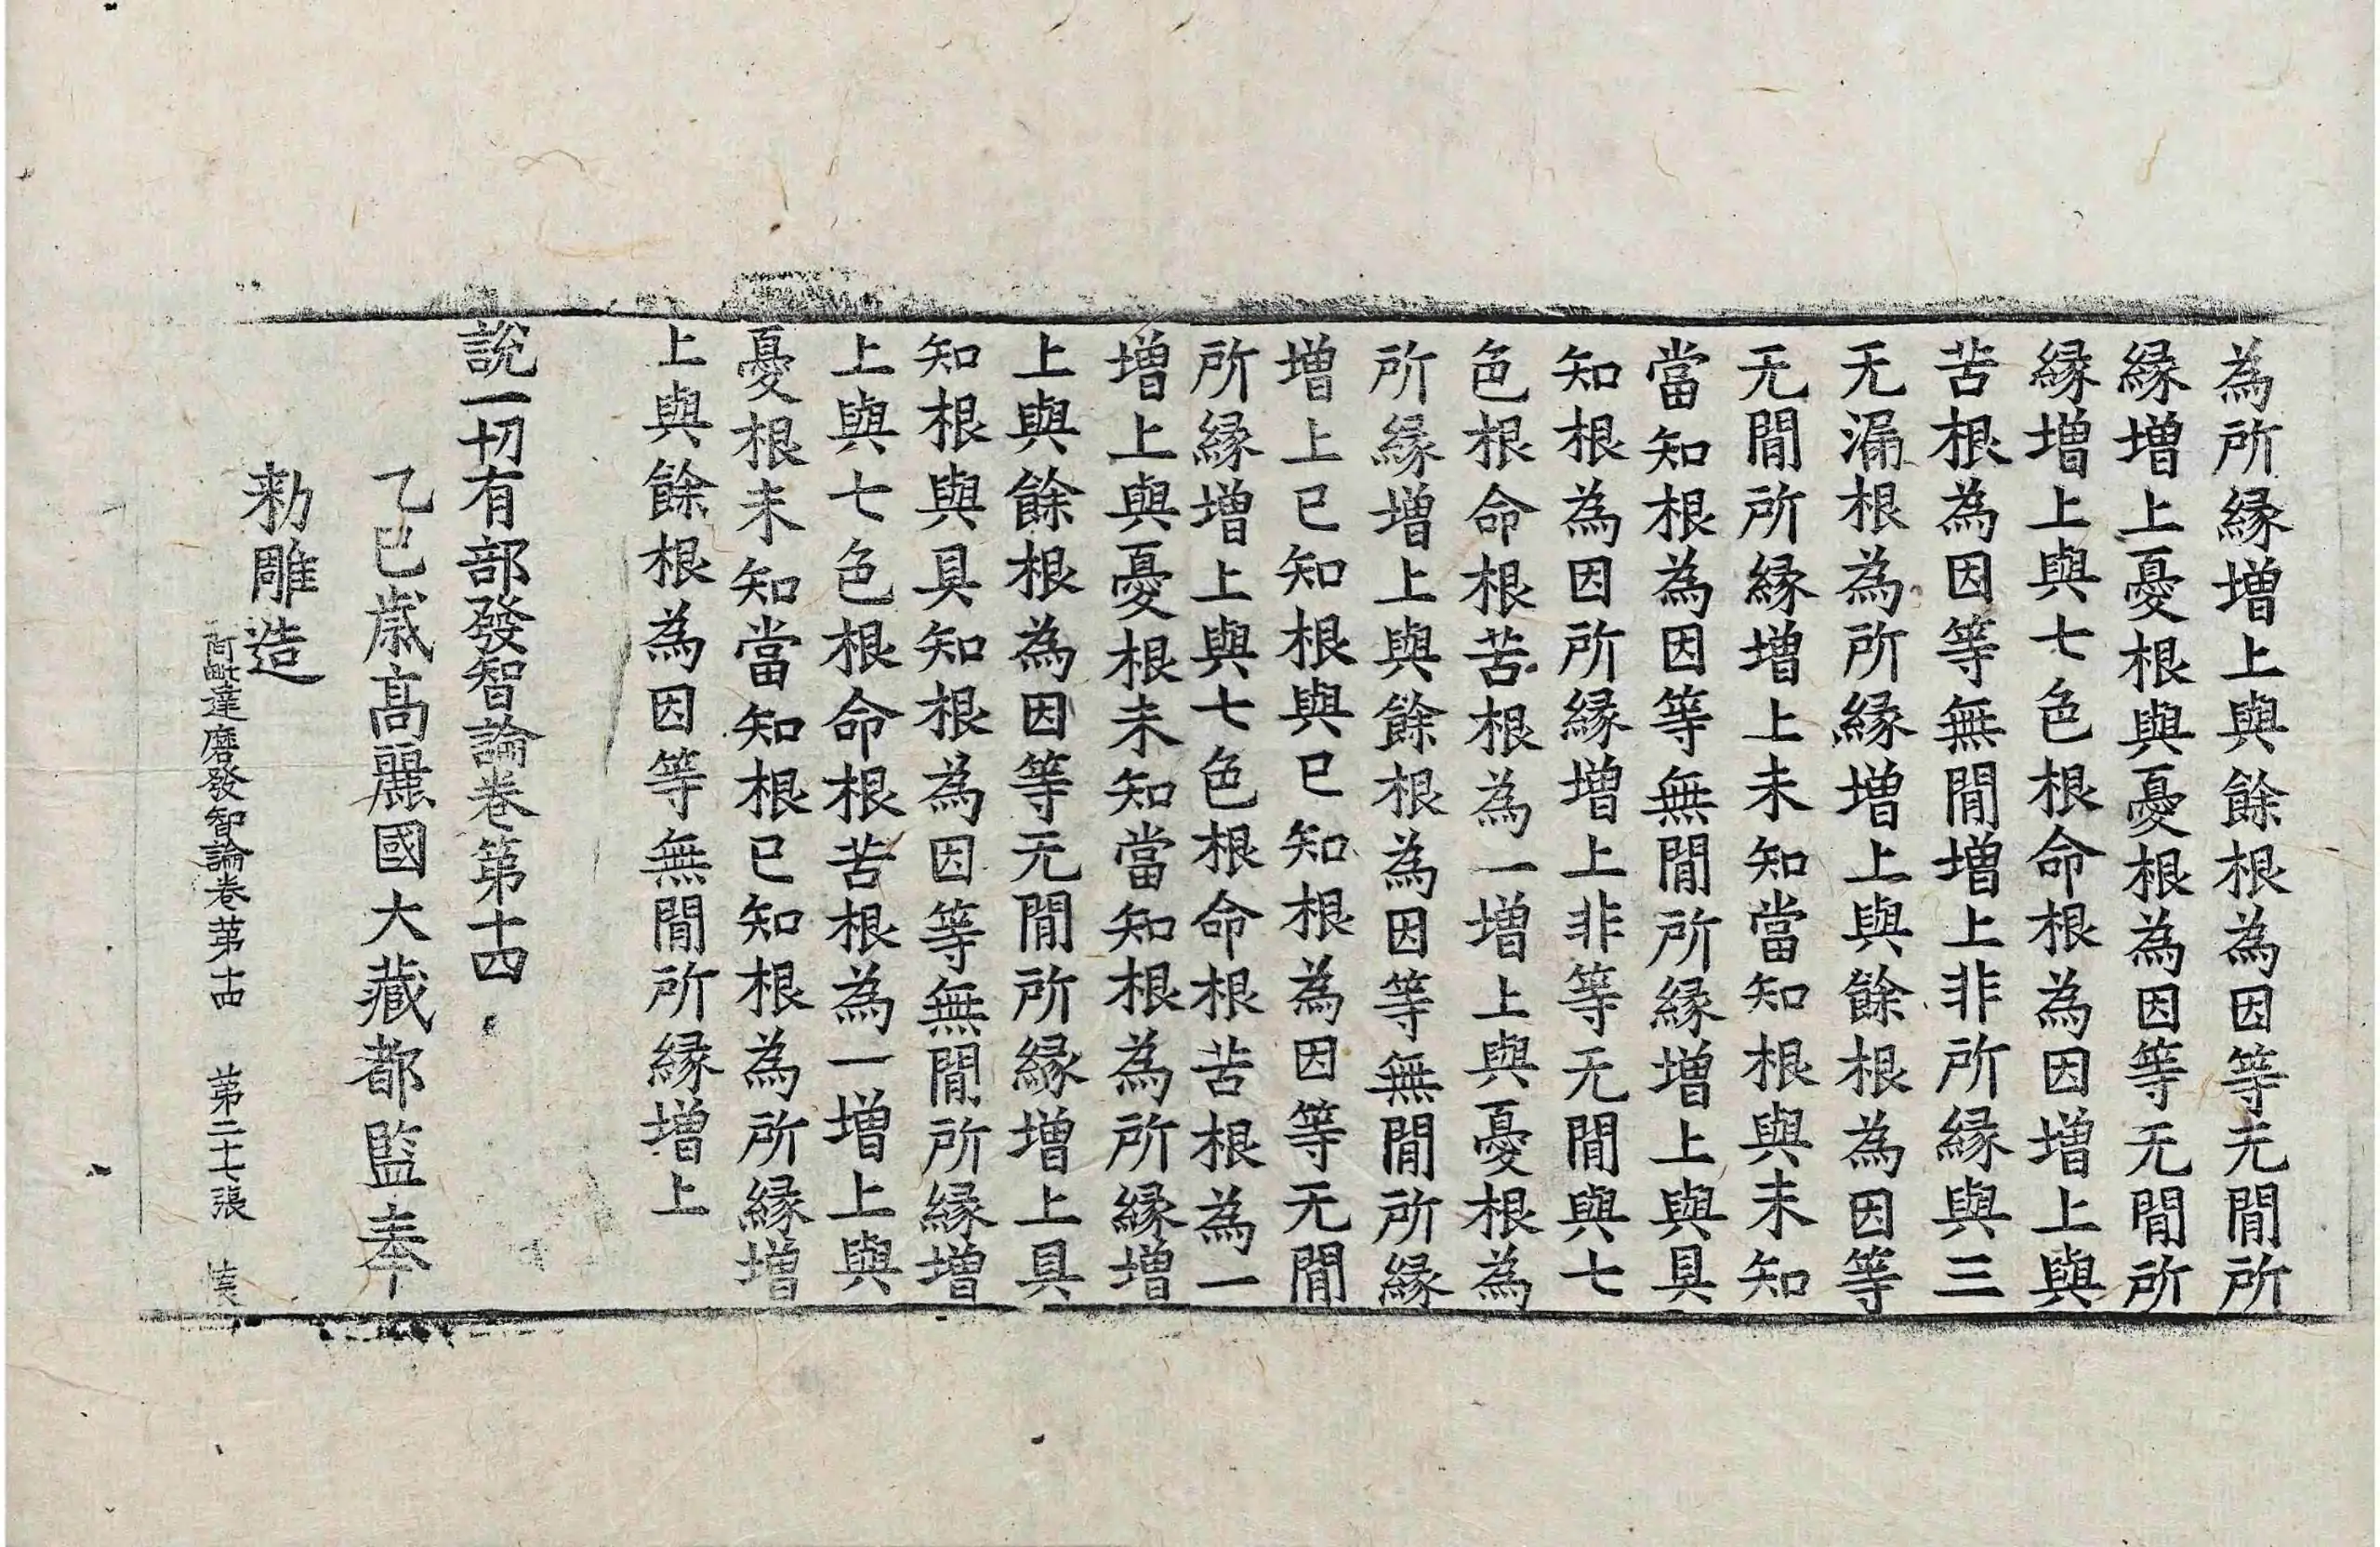 為所緣增上與餘根為因等无閒所
緣增上憂根與憂根為因等无閒所
緣增上與七色根命根為因增上與
苦根為因等無閒增上非所緣與三
无漏根為所緣增上與餘根為因等
无閒所緣增上未知當知根與未知
當知根為因等無閒所緣增上與具
知根為因所緣增上非等无閒與七
色根命根苦根為一增上與憂根為
所緣增上與餘根為因等無閒所緣
增上已知根與已知根為因等无閒
所緣增上與七色根命根苦根為一
增上與憂根未知當知根為所緣增
上與餘根為因等无閒所緣增上具
知根與具知根為因等無閒所緣增
上與七色根命根苦根為一增上與
憂根未知當知根已知根為所緣增
上與餘根為因等無閒所緣增上
說一切有部發智論卷第十四
乙巳歲高麗國大藏都監奉
勑雕造
阿毗達磨發智論卷第十四 第二十七張